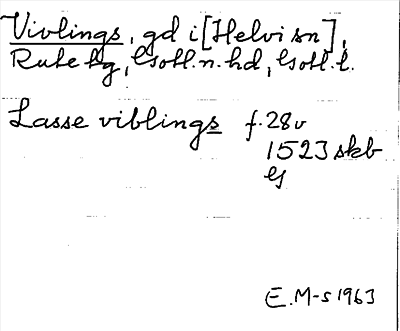 Vivlings, gd i [Helvi sn],
Rute tg, Gotl. n. hd, Gotl. l.
Lasse viblings f. 28v
1523 skb
G
E. M-s 1963